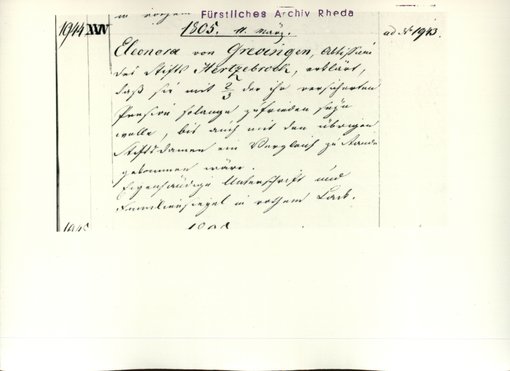 in rothem
Fürstliches Archiv Rheda
1944 XXIV 1805. 11. März. ad No 1943.
Eleonora von Grevingen, Äbtissin
des Stifts Hertzebrock, erklärt,
daß sie mit 2/3 der ihr versicherten
Pension solange zufrieden seyn
wolle, bis auch mit den übrigen
Stiftsdamen ein Vergleich zu Stande
gekommen wäre.
Eigenhändige Unterschrift und
Familiensiegel in rothem Lack.
1945 1805